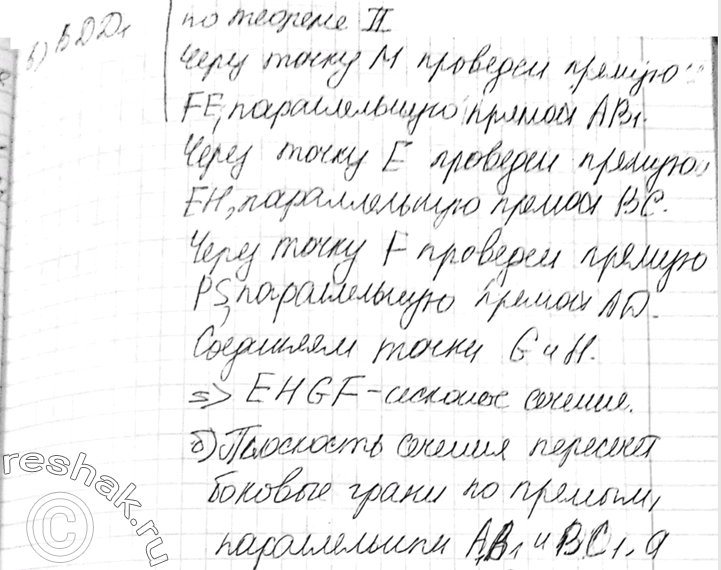 в) BDD₁
по теореме II
Через точку M проведем прямую
FE, параллельную прямой AB₁.
Через точку E проведем прямую
EH, параллельную прямой BC.
Через точку F проведем прямую
PS, параллельную прямой AD.
Соединяем точки G и H.
=> EHGF - искомое сечение.
б) Плоскость сечения пересечет
боковые грани по прямым,
параллельным AB₁ и BC₁, а
© reshak.ru